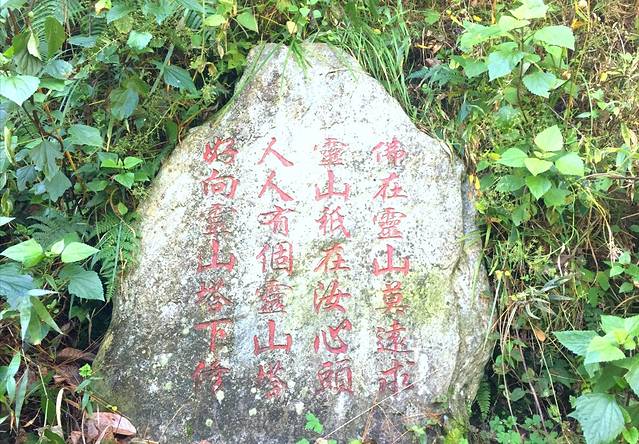 佛在靈山莫遠求
靈山祇在汝心頭
人人有個靈山塔
好向靈山塔下修